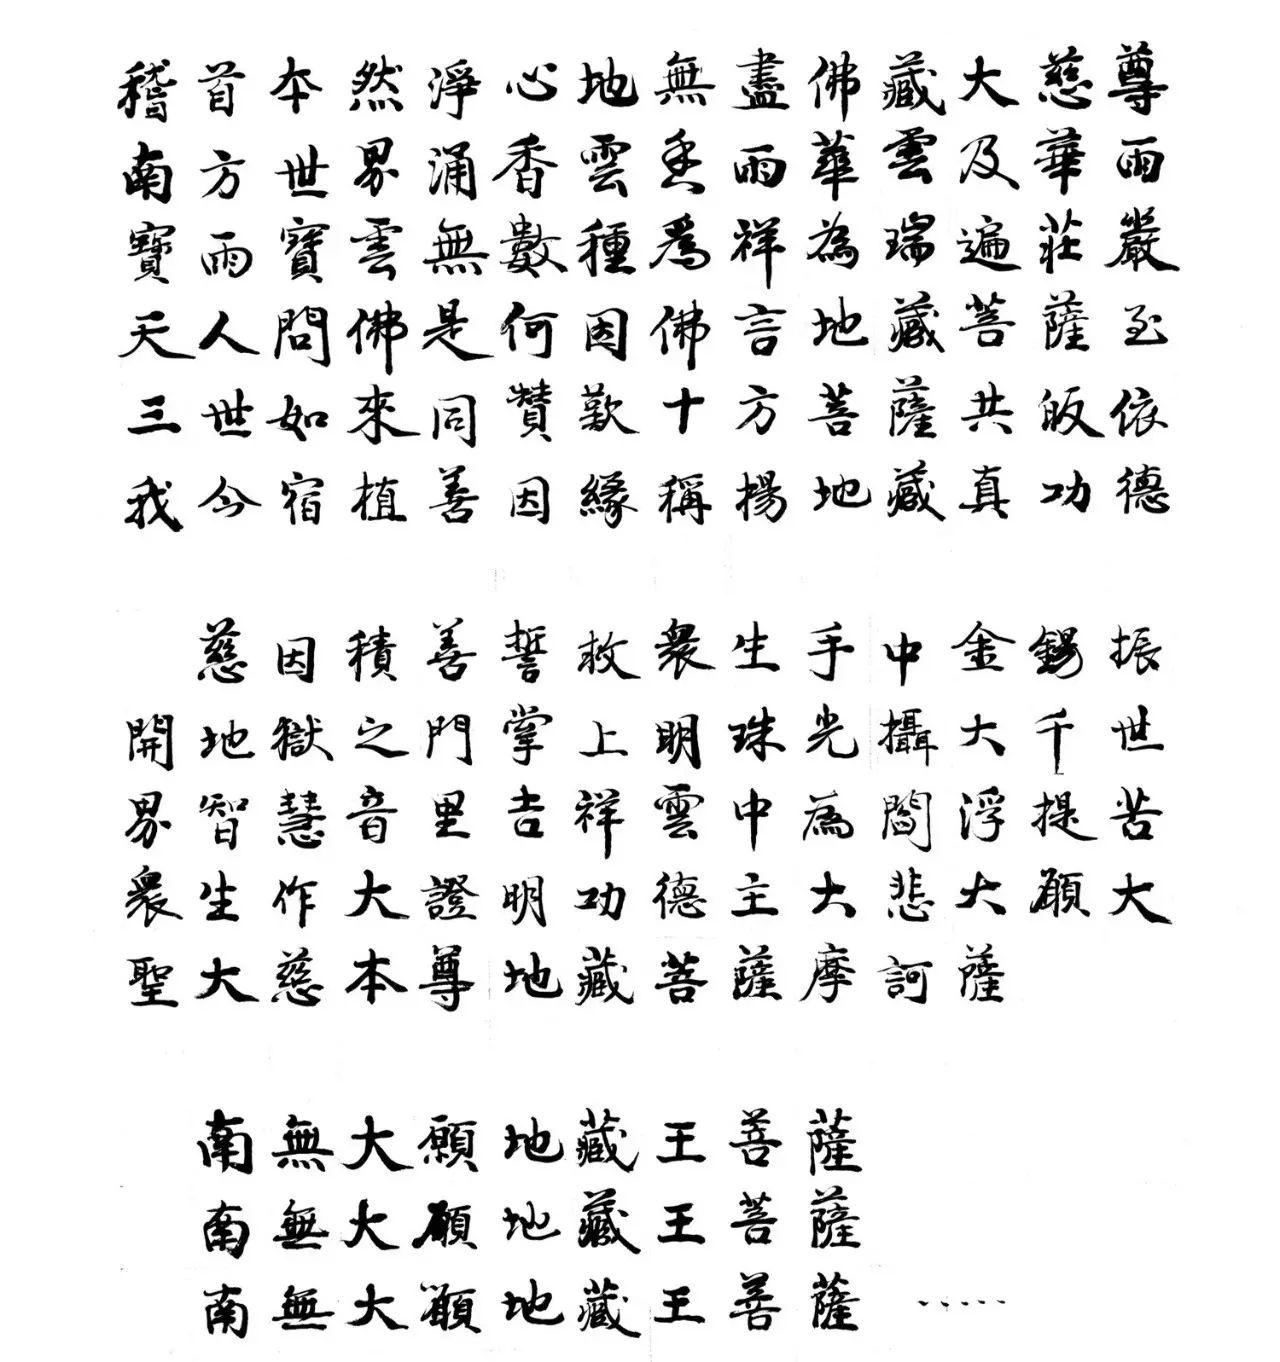 稽首本然淨心地無盡佛藏大慈尊
南方世界涌香雲香雨華雲及華雨
寶雨寶雲無數種爲祥為瑞遍莊嚴
天人問佛是何因佛言地藏菩薩至
三世如來同贊歎十方菩薩共皈依
我今宿植善因緣稱揚地藏真功德
慈因積善誓救衆生手中金錫振
開地獄之門掌上明珠光攝大千世
界智慧音里吉祥雲中為閻浮提苦
衆生作大證明功德主大悲大願大
聖大慈本尊地藏菩薩摩訶薩
南無大願地藏王菩薩
南無大願地藏王菩薩
南無大願地藏王菩薩 .....